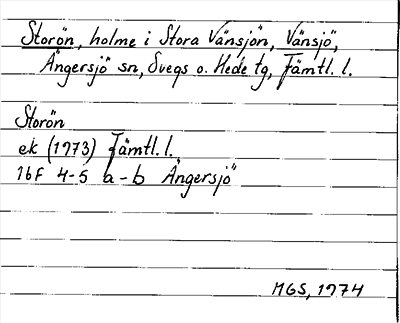 Storön, holme i Stora Vänsjön, Vänsjö,
Ängersjö sn, Svegs o. Hede tg, Jämtl. l.
Storön
ek (1973) Jämtl. l.
16F 4-5 a-b Ängersjö
MGS, 1974